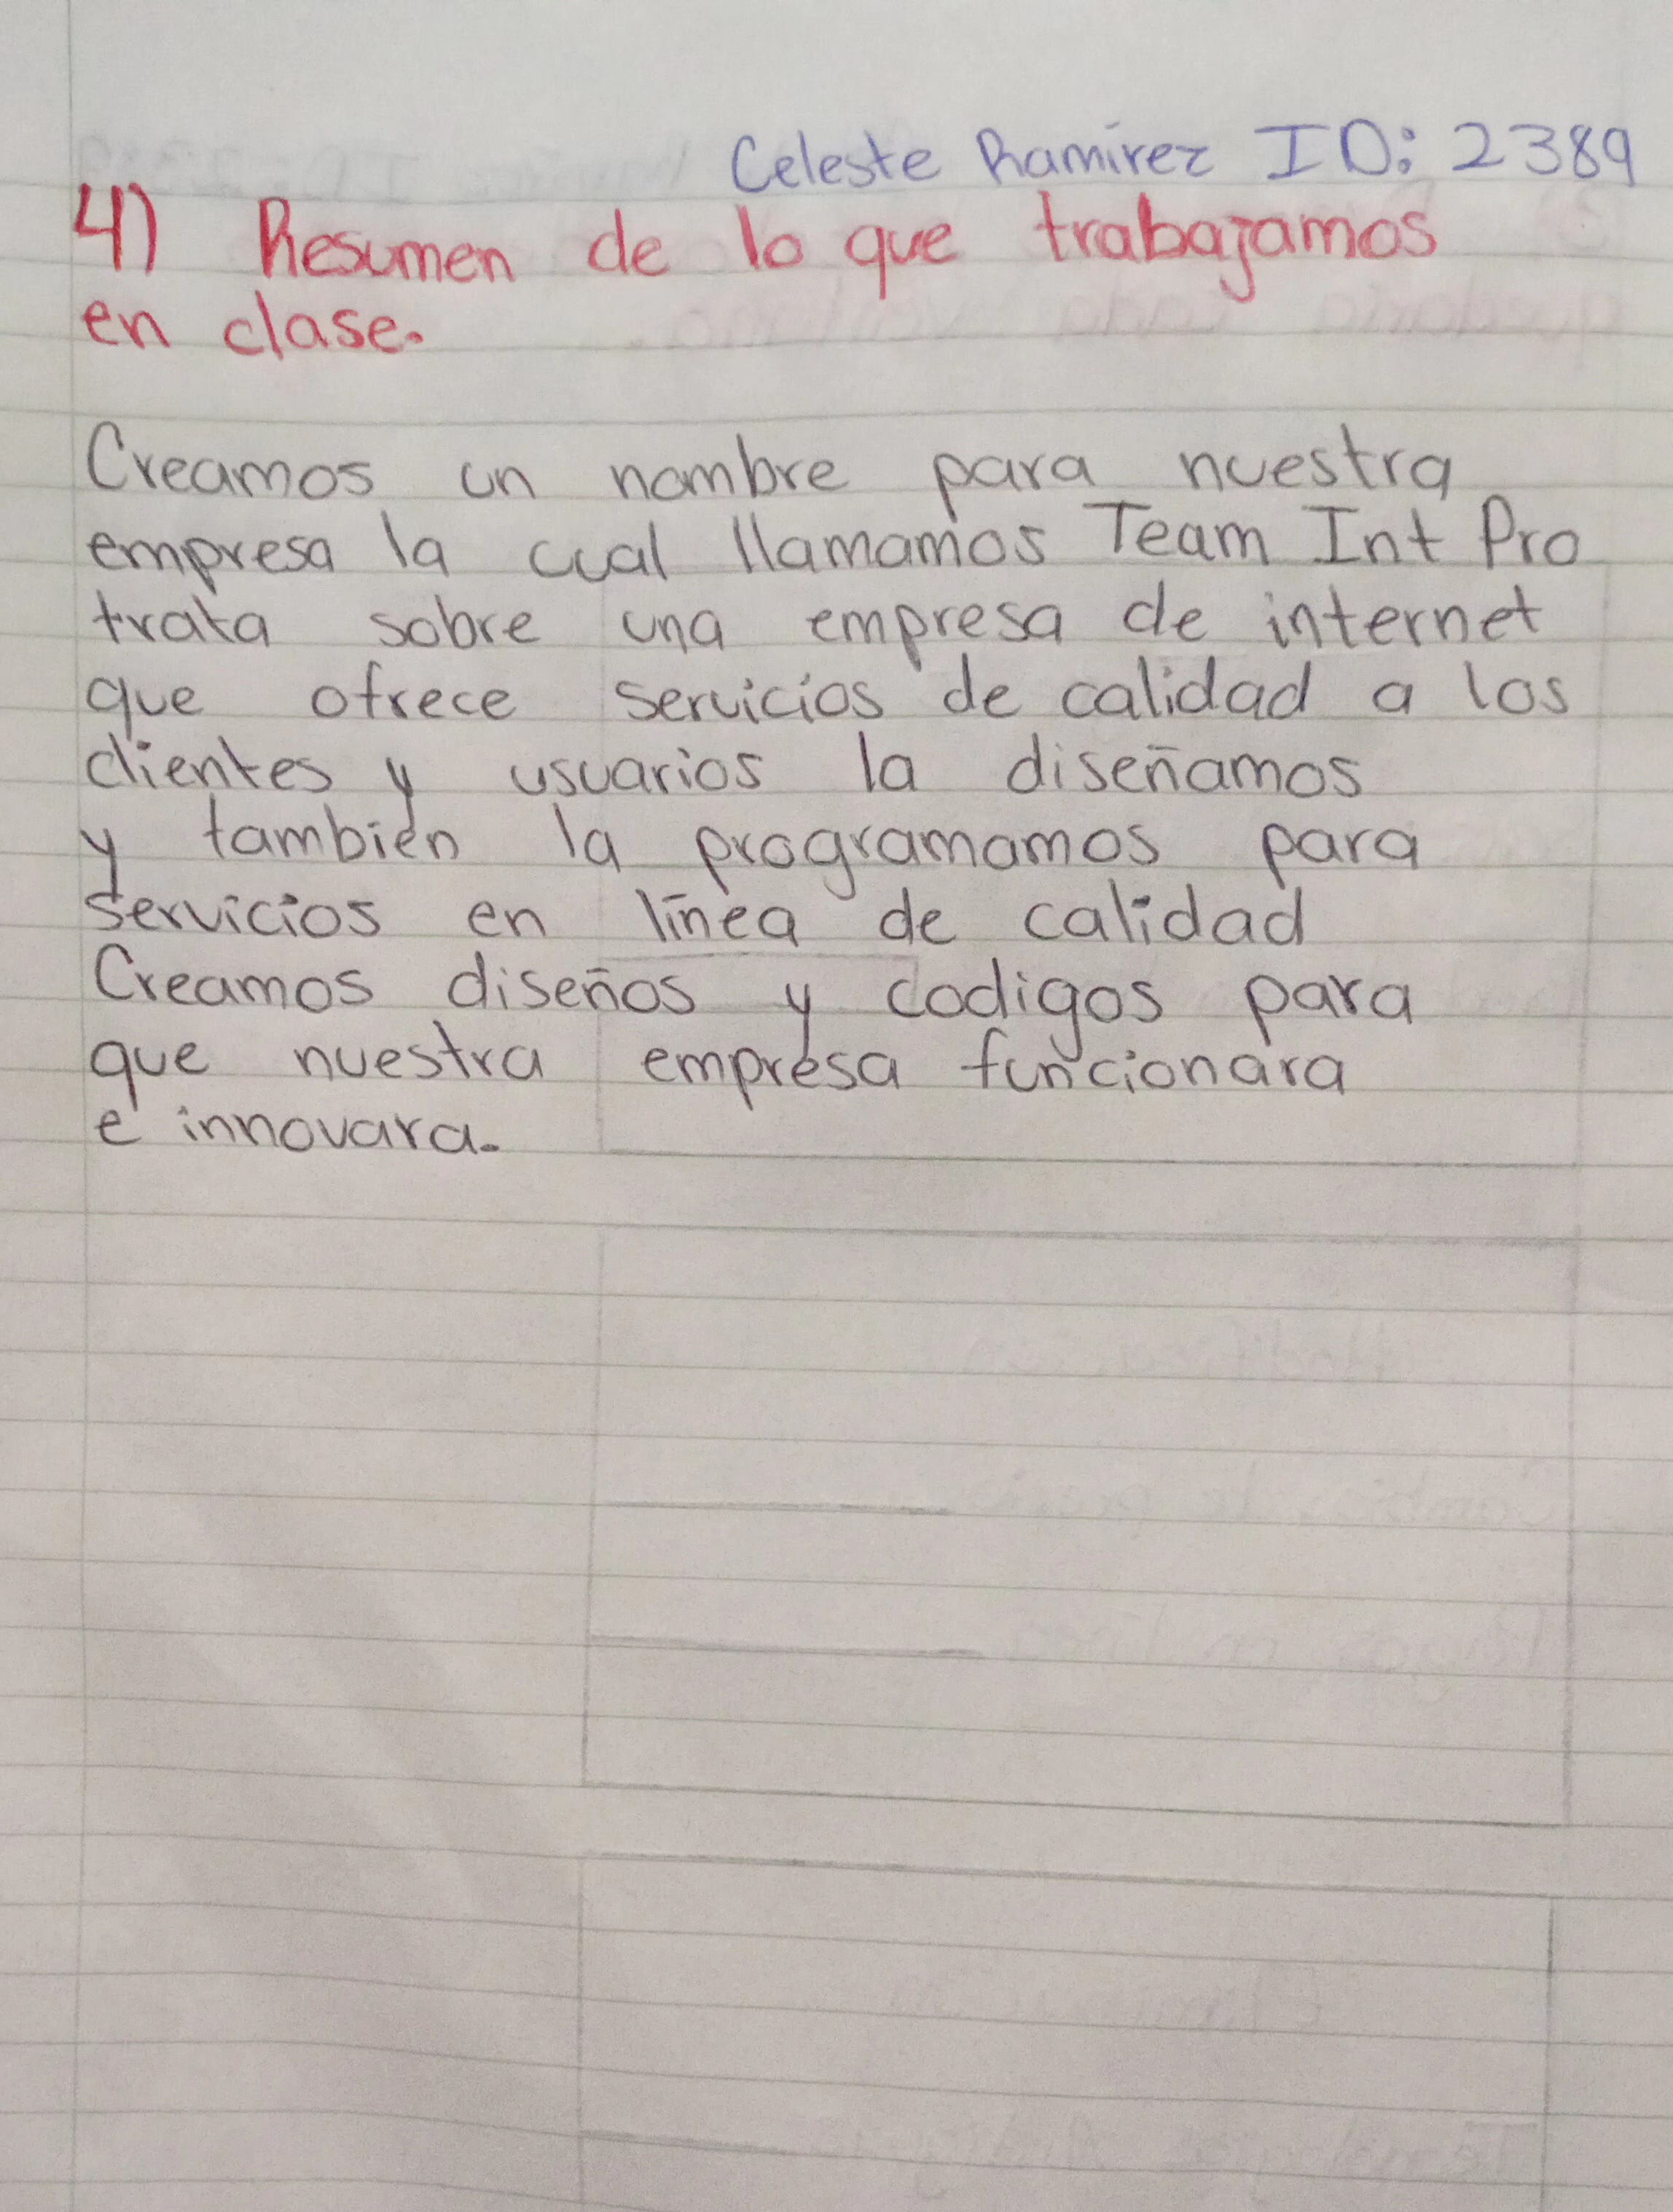 Celeste Ramirez ID: 2389
4) Resumen de lo que trabajamos
en clase.
Creamos un nombre para nuestra
empresa la cual llamamos Team Int Pro
trata sobre una empresa de internet
que ofrece servicios de calidad a los
clientes y usuarios la diseñamos
y tambien la programamos para
servicios en línea de calidad
Creamos diseños y codigos para
que nuestra empresa funcionara
e innovara.